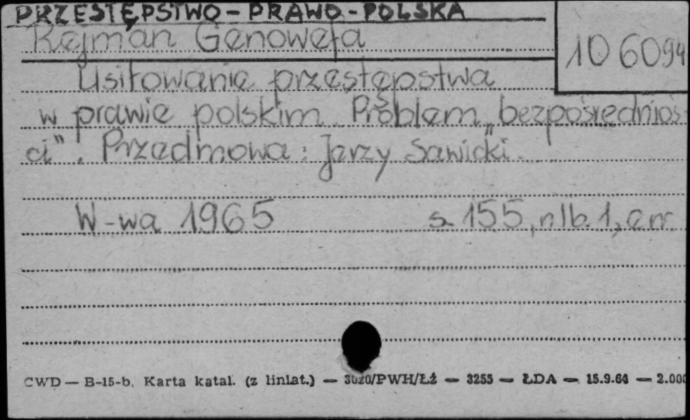 PRZESTĘPSTWO - PRAWO - POLSKA
Rejman Genowefa
106094
Usiłowanie przestępstwa
w prawie polskim. Problem „bezpośrednioś-
ci". Przedmowa: Jerzy Sawicki.
W-wa 1965 s. 155, nlb. 1, err.
CWD — B-15-b. Karta katal. (z liniat.) — 3020/PWH/ŁŻ — 3255 — ŁDA — 15.9.64 — 2.000